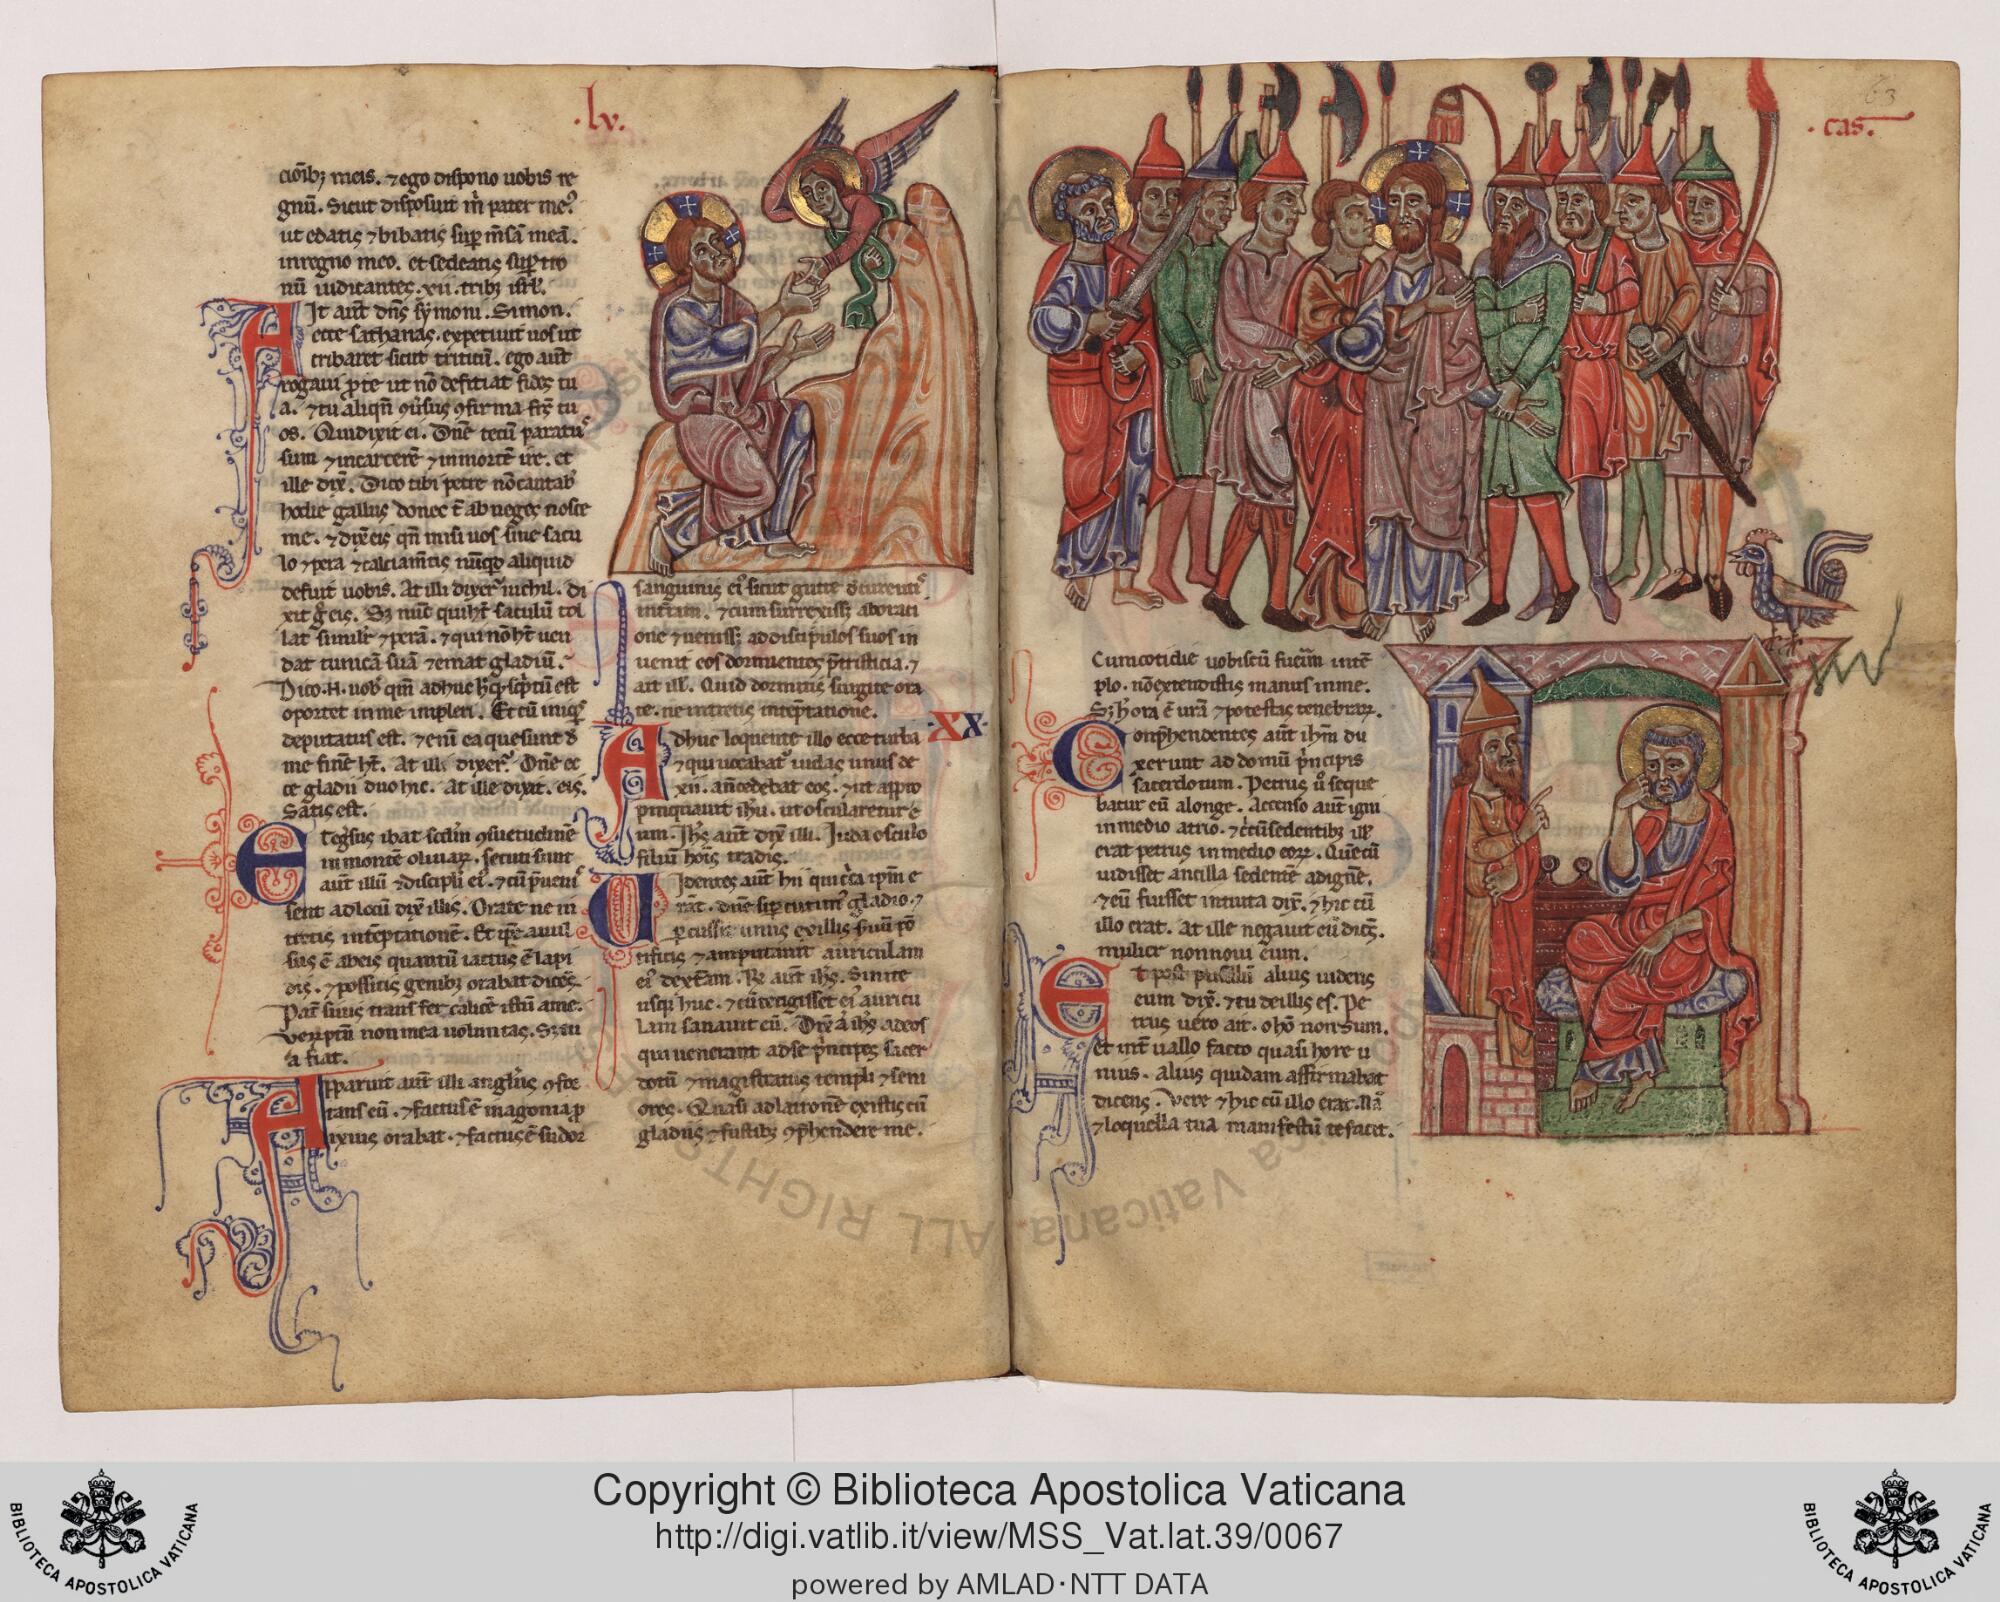 ·lv.
cioib; meis. ⁊ ego dispono uobis re
gnū. Sicut disposuit m̄ pater me᷒
ut edatis ⁊ bibatis sup̄ m̄sā meā.
in regno meo. et sedeatis sup̄ tro
nū iudicantes .xii. trib; isrl̄.
It aūt dn̄s symoni. Simon.
ecce sathanas. expetiuit uos ut
cribaret sicut triticū. ego aūt
rogaui p̄ te ut nō defitiat fides tu
a. ⁊ tu aliqn̄ ꝯuersus ꝯfirma fr̄s tu
os. Qui dixit ei. Dn̄e tecū paratus
sum ⁊ in carcerē ⁊ in mortē ire. et
ille dix̄. Dico tibi petre nō cantab̄
hodie gallus donec t̄ abneges nosse
me. ⁊ dix̄ eis qn̄ misi uos sine sacu
lo ⁊ pera ⁊ calciam̄tis nūqd̄ aliquid
defuit uobis. At illi dixer̄ nichil. di
xit ḡ eis. S; nūc qui h̄t saculū tol
lat simil̄r ⁊ perā. ⁊ qui nō h̄t uen
dat tunicā suā ⁊ emat gladiū.
Dico .n. uob̄ qm̄ adhuc h̄ qd̄ sc̄ptū est
oportet in me impleri. Et cū iniq̄s
deputatus est. ⁊ enī ea que sunt d̄
me finē h̄t. At illi dixer̄. Dn̄e ec
ce gladii duo hic. At ille dixit. eis.
Satis est.
Et egr̄sus ibat scdm̄ ꝯsuetudinē
in montē oliuaꝝ. secuti sunt
aūt illū ⁊ discipl̄i ei᷒. ⁊ cū p̄ueni
sent ad locū dix̄ illis. Orate ne in
tretis in tēptationē. Et ip̄e auul
sus ē ab eis quantū iactus ē lapi
dis. ⁊ possitis genib; orabat dicēs.
Pat̄ si uis transfer calicē istū a me.
Veꝝptm̄ non mea uoluntas. S; tu
a fiat.
Apparuit aūt illi angl̄us ꝯfor
tans eū. ⁊ factus ē in agonia p̄
lixius orabat. ⁊ factus ē sudor
sanguinis ei᷒ sicut gutte decurentis
in t̄ram. ⁊ cum surrexiss; ab orati
one ⁊ ueniss; ad discipulos suos in
uenit eos dormientes p̄ tristicia. ⁊
ait ill̄. Quid dormitis surgite ora
te. ne intretis in tēptatione.
·XX·
Adhuc loquente illo ecce turba
⁊ qui uocabat᷒ iudas unus de
xii. an̄cedebat eos. ⁊ ut appro
pinquauit ih̄u. ut oscularetur e
um. Ih̄s aūt dix̄ illi. Iuda osculo
filiū hoīs tradis.
Uidentes aūt hii qui c̄ca ip̄m e
rāt. dn̄e si p̄cutim᷒ gladio. ⁊
p̄cussit unus ex illis seruū pō
tificis ⁊ amputauit auriculam
ei᷒ dext̄am. R̄ aūt ih̄s. Sinite
usq; huc. ⁊ cū tetigisset ei᷒ auricu
lam sanauit eū. Dix̄ a ih̄s ad eos
qui uenerant ad se p̄ncipes sacer
dotū ⁊ magistratus templi ⁊ seni
ores. Quasi ad latronē existis cū
gladiis ⁊ fustib; ꝯp̄hendere me.
63
·cas.
Cum cotidie uobiscū fuerim in tē
plo. nō extendistis manus in me.
S; h̄ ora ē urā ⁊ potestas tenebraꝝ.
Conp̄hendentes aūt ih̄m du
xerunt ad domū p̄ncipis
sacerdotum. Petrus u᷒o seque
batur eū a longe. Accenso aūt igni
in medio atrio. ⁊ c̄cūsedentib; ill̄
erat petrus in medio eoꝝ. Quē cū
uidisset ancilla sedentē ad ignē.
⁊ eū fuisset intuita dix̄. ⁊ hic cū
illo erat. At ille negauit eū dicēs.
mulier non noui eum.
Et post pusillū alius uidens
eum dix̄. ⁊ tu de illis es. Pe
trus uero ait. o hō non sum.
Et int̄uallo facto quasi hore u
nius. alius quidam affirmabat
dicens. Vere ⁊ hic cū illo erat. nā
⁊ loquella tua manifestū te facit.
Copyright © Biblioteca Apostolica Vaticana
http://digi.vatlib.it/view/MSS_Vat.lat.39/0067
powered by AMLAD·NTT DATA
BIBLIOTECA APOSTOLICA VATICANA
BIBLIOTECA APOSTOLICA VATICANA